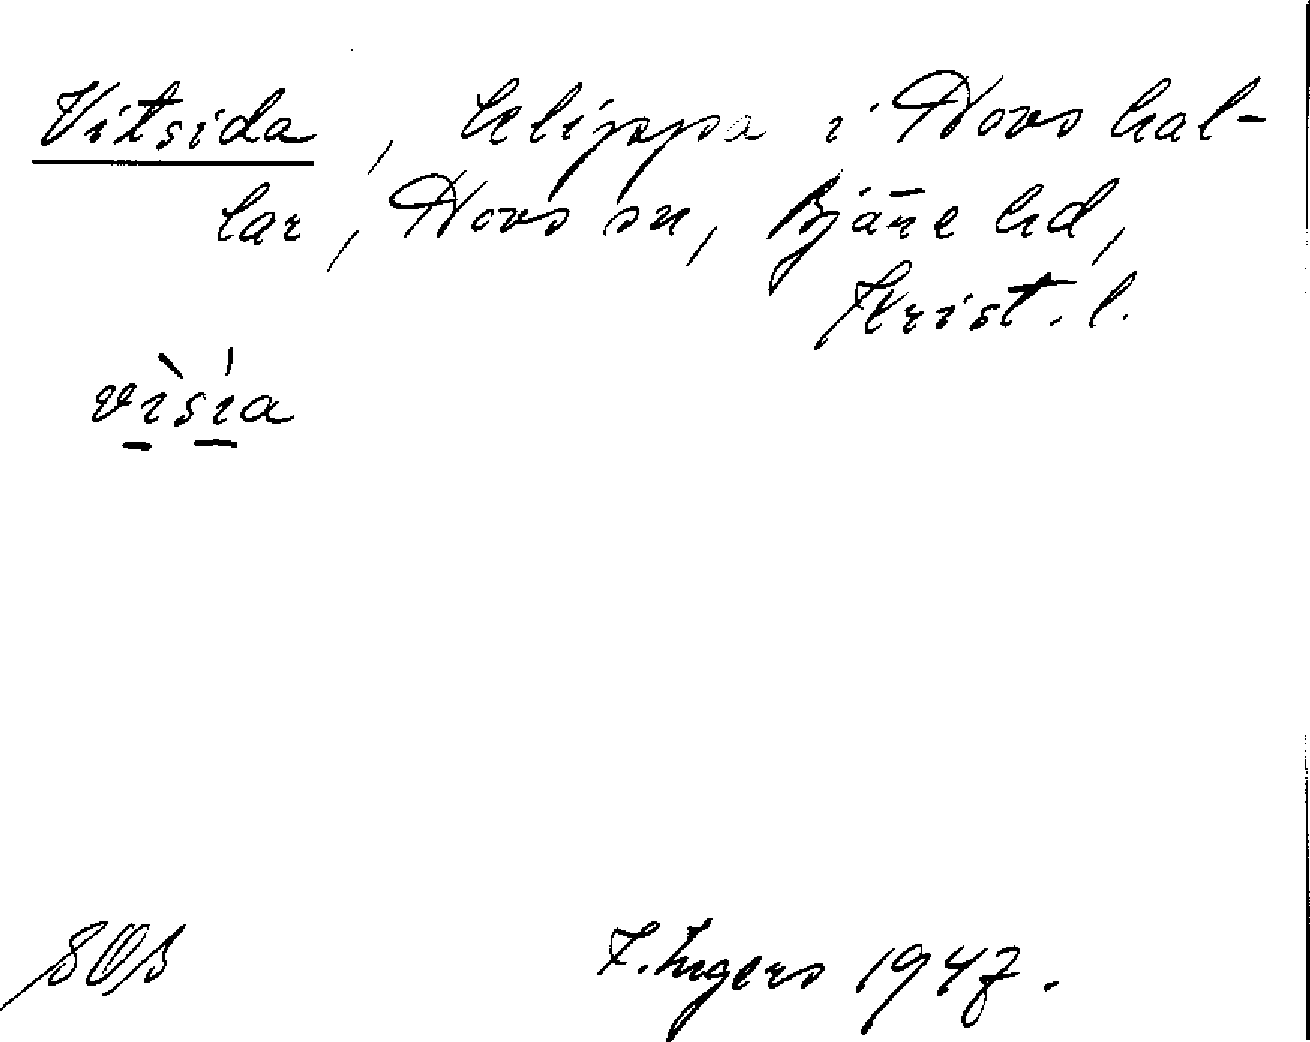 Vitsida, klippa i Hovs hal-
lar, Hovs sn, Bjäre hd,
Krist. l.
vìsía
SOS
I. Ingers 1947.